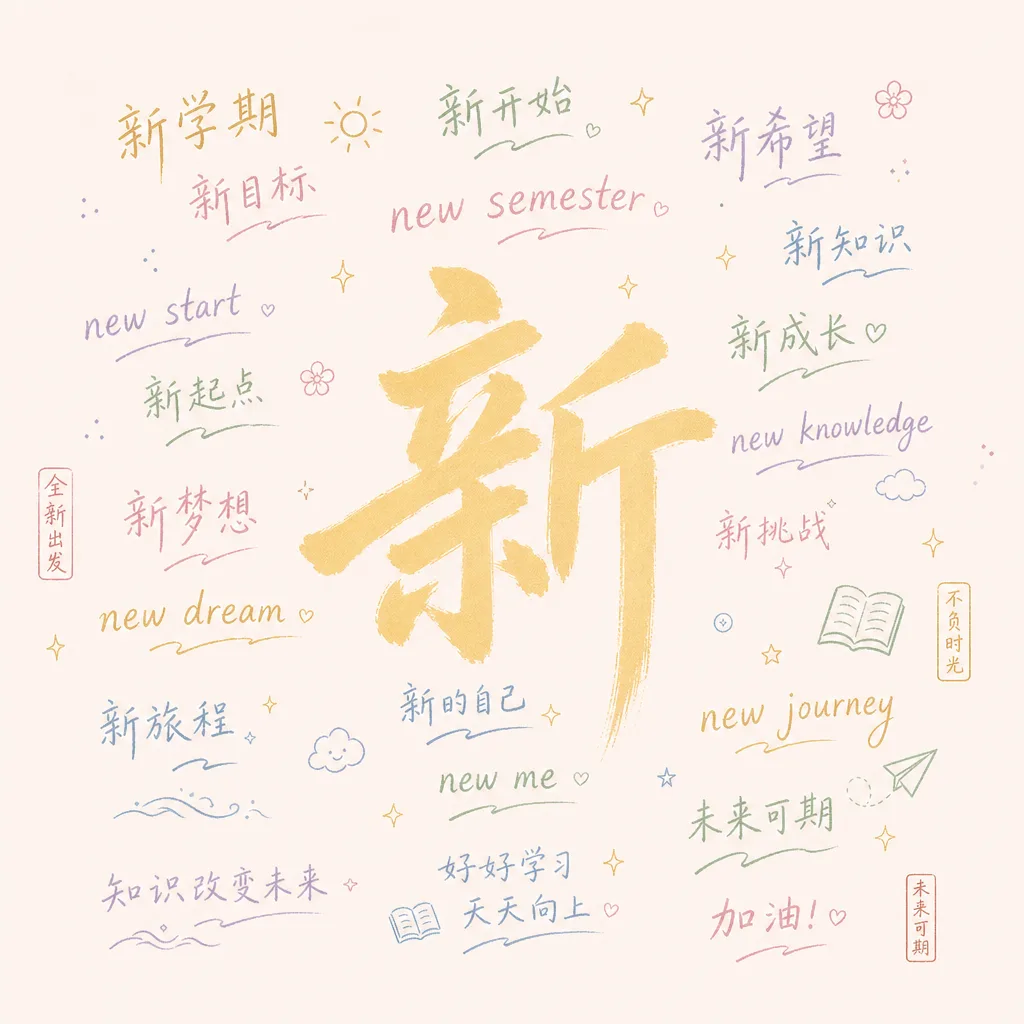 新学期
新开始
新希望
新目标
new semester
新知识
new start
新
新成长
新起点
new knowledge
全新出发
新梦想
新挑战
new dream
不负时光
新旅程
新的自己
new journey
new me
未来可期
知识改变未来
好好学习
天天向上
加油!
未来可期